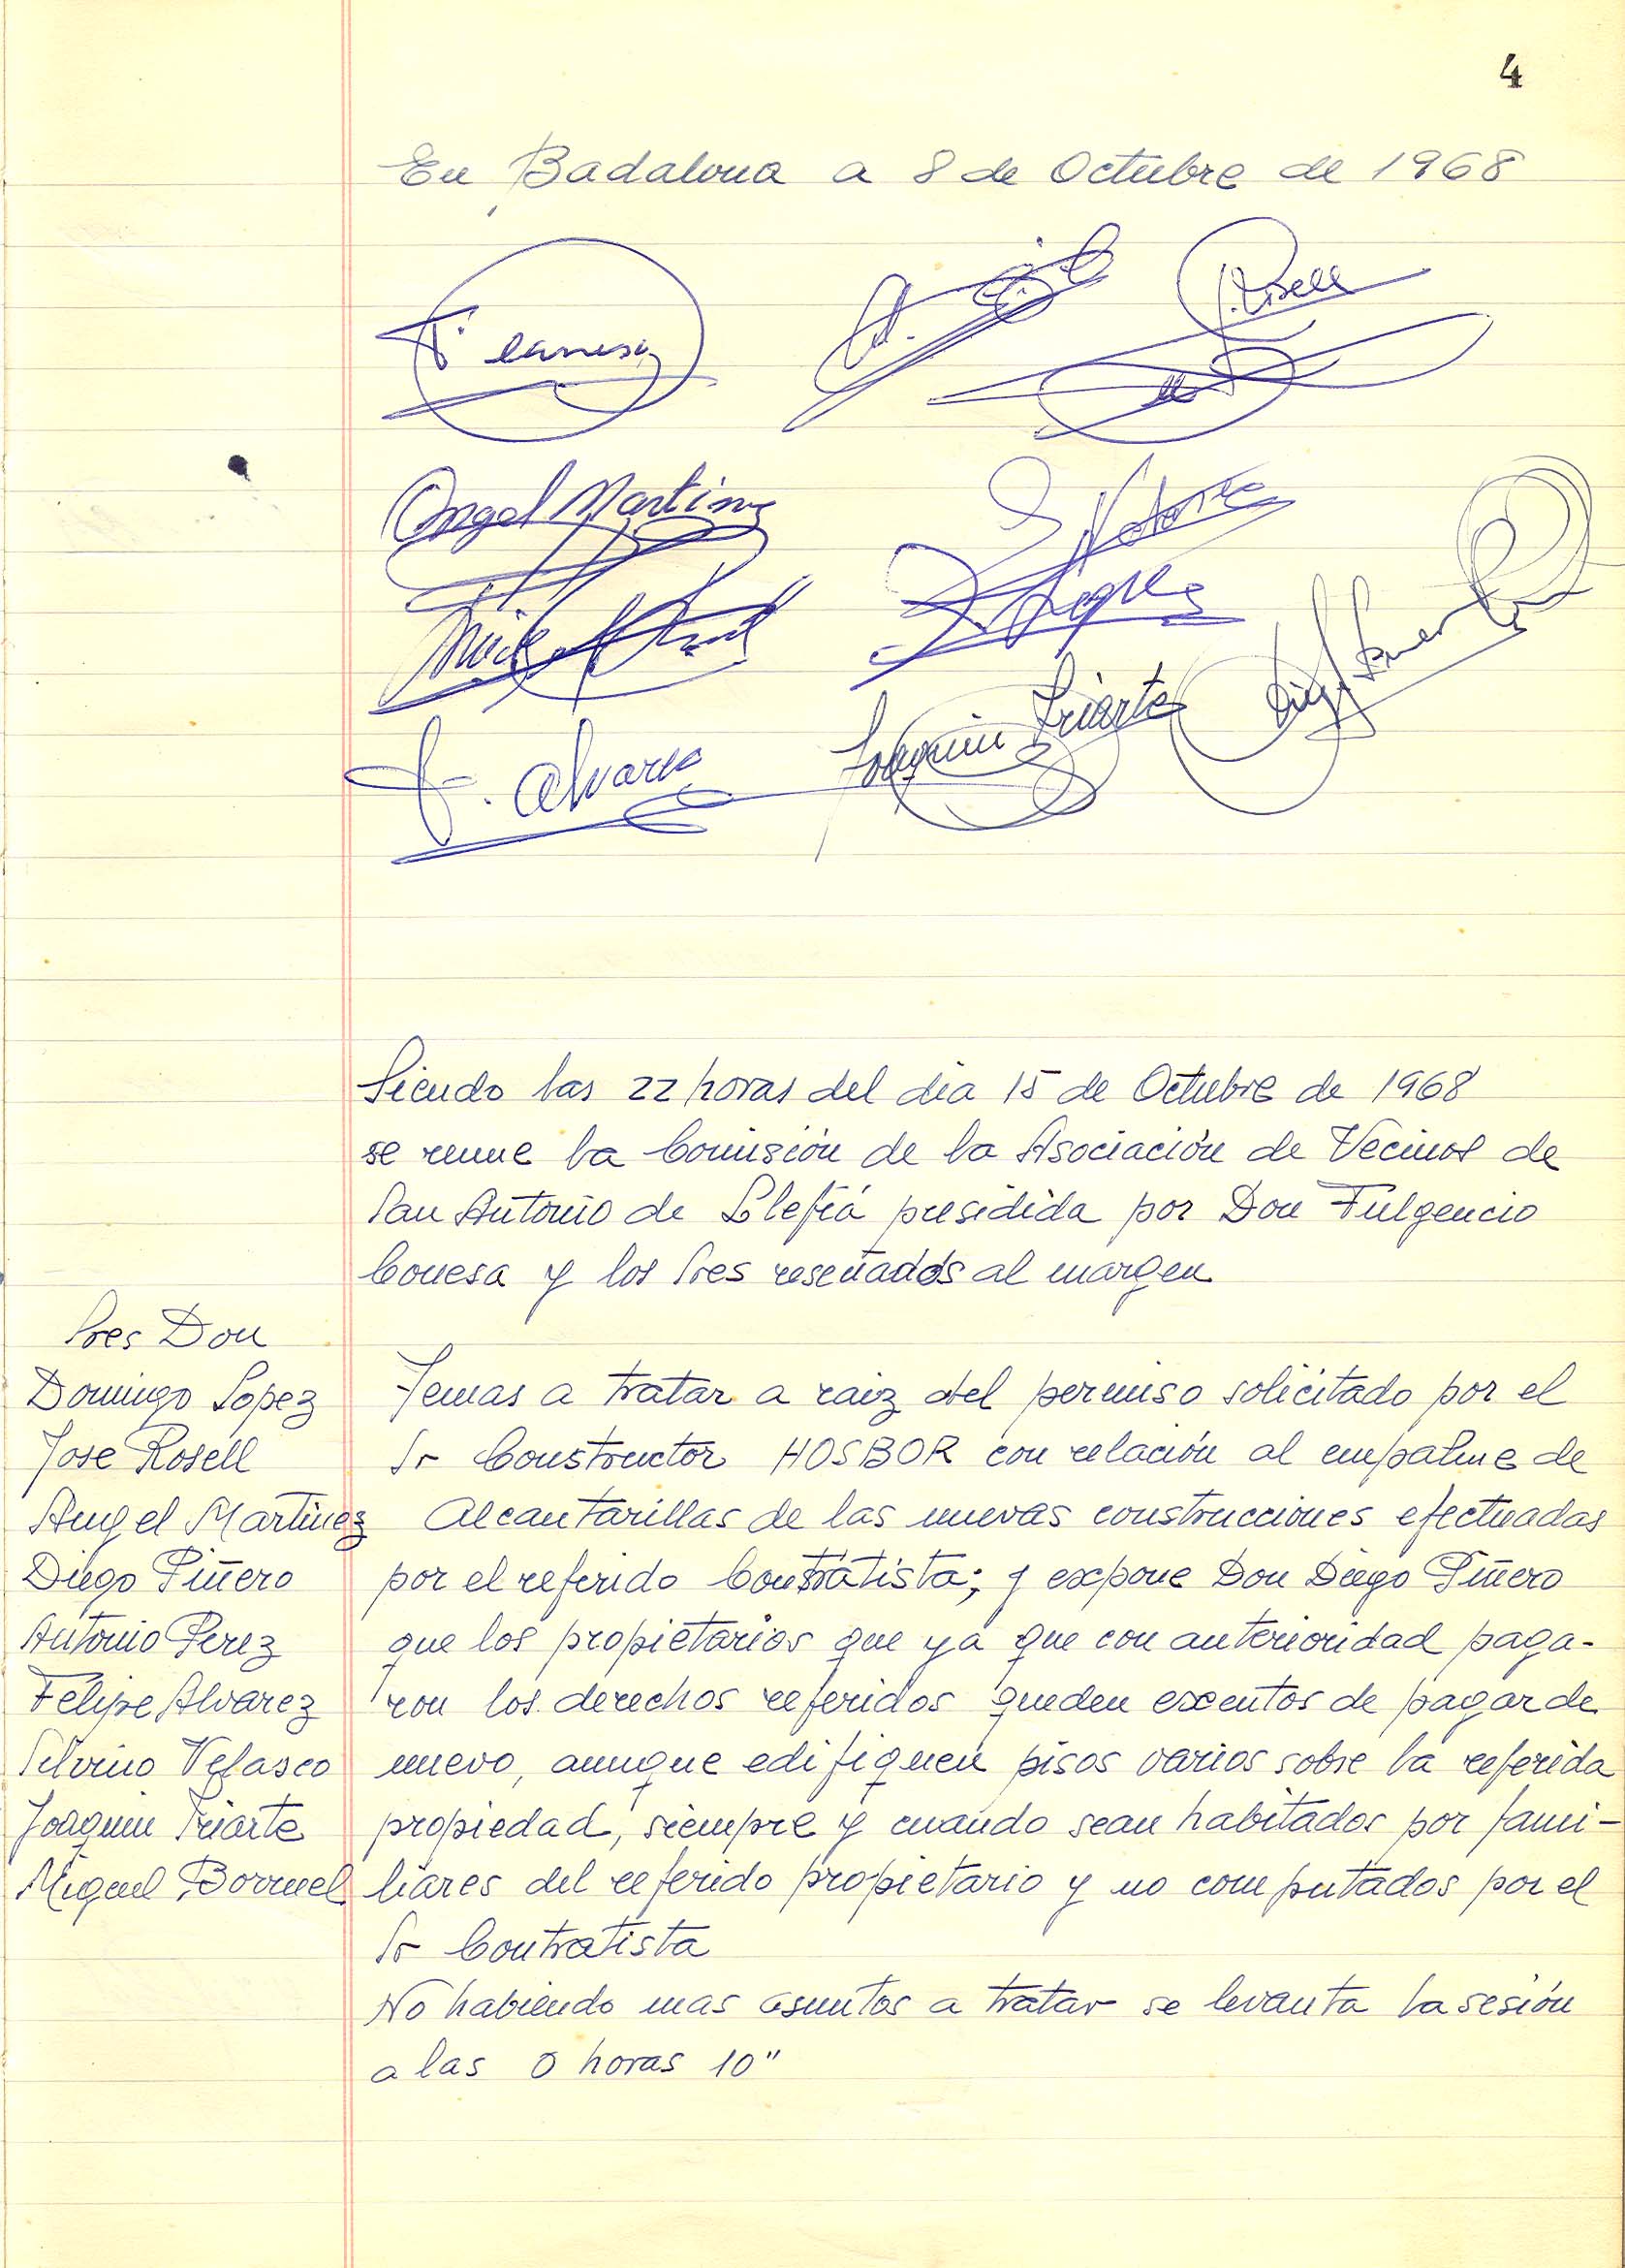 4
En Badalona a 8 de Octubre de 1968
Rosell
Angel Martinez
F. Alvarez
Joaquin Iriarte
Siendo las 22 horas del dia 15 de Octubre de 1968
se reune la Comisión de la Asociación de Vecinos de
San Antonio de Llefiá presidida por Don Fulgencio
Conesa y los Sres reseñados al margen
Sres Don
Domingo Lopez
Jose Rosell
Angel Martinez
Diego Piñero
Antonio Perez
Felipe Alvarez
Silvino Velasco
Joaquin Iriarte
Miguel Borruel
Temas a tratar a raiz del permiso solicitado por el
Sr Constructor HOSBOR con relación al empalme de
Alcantarillas de las nuevas construcciones efectuadas
por el referido Contratista; y expone Don Diego Piñero
que los propietarios que ya que con anterioridad paga-
ron los derechos referidos queden exentos de pagar de
nuevo, aunque edifiquen pisos varios sobre la referida
propiedad, siempre y cuando sean habitados por fami-
liares del referido propietario y no computados por el
Sr Contratista
No habiendo mas asuntos a tratar se levanta la sesión
a las 0 horas 10"